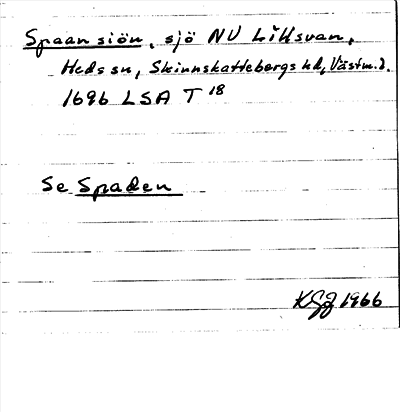 Spaan siön, sjö NV Lillsvan,
Heds sn, Skinnskattebergs hd, Västm.l.
1696 LSA T 18
Se Spaden
KGJ 1966